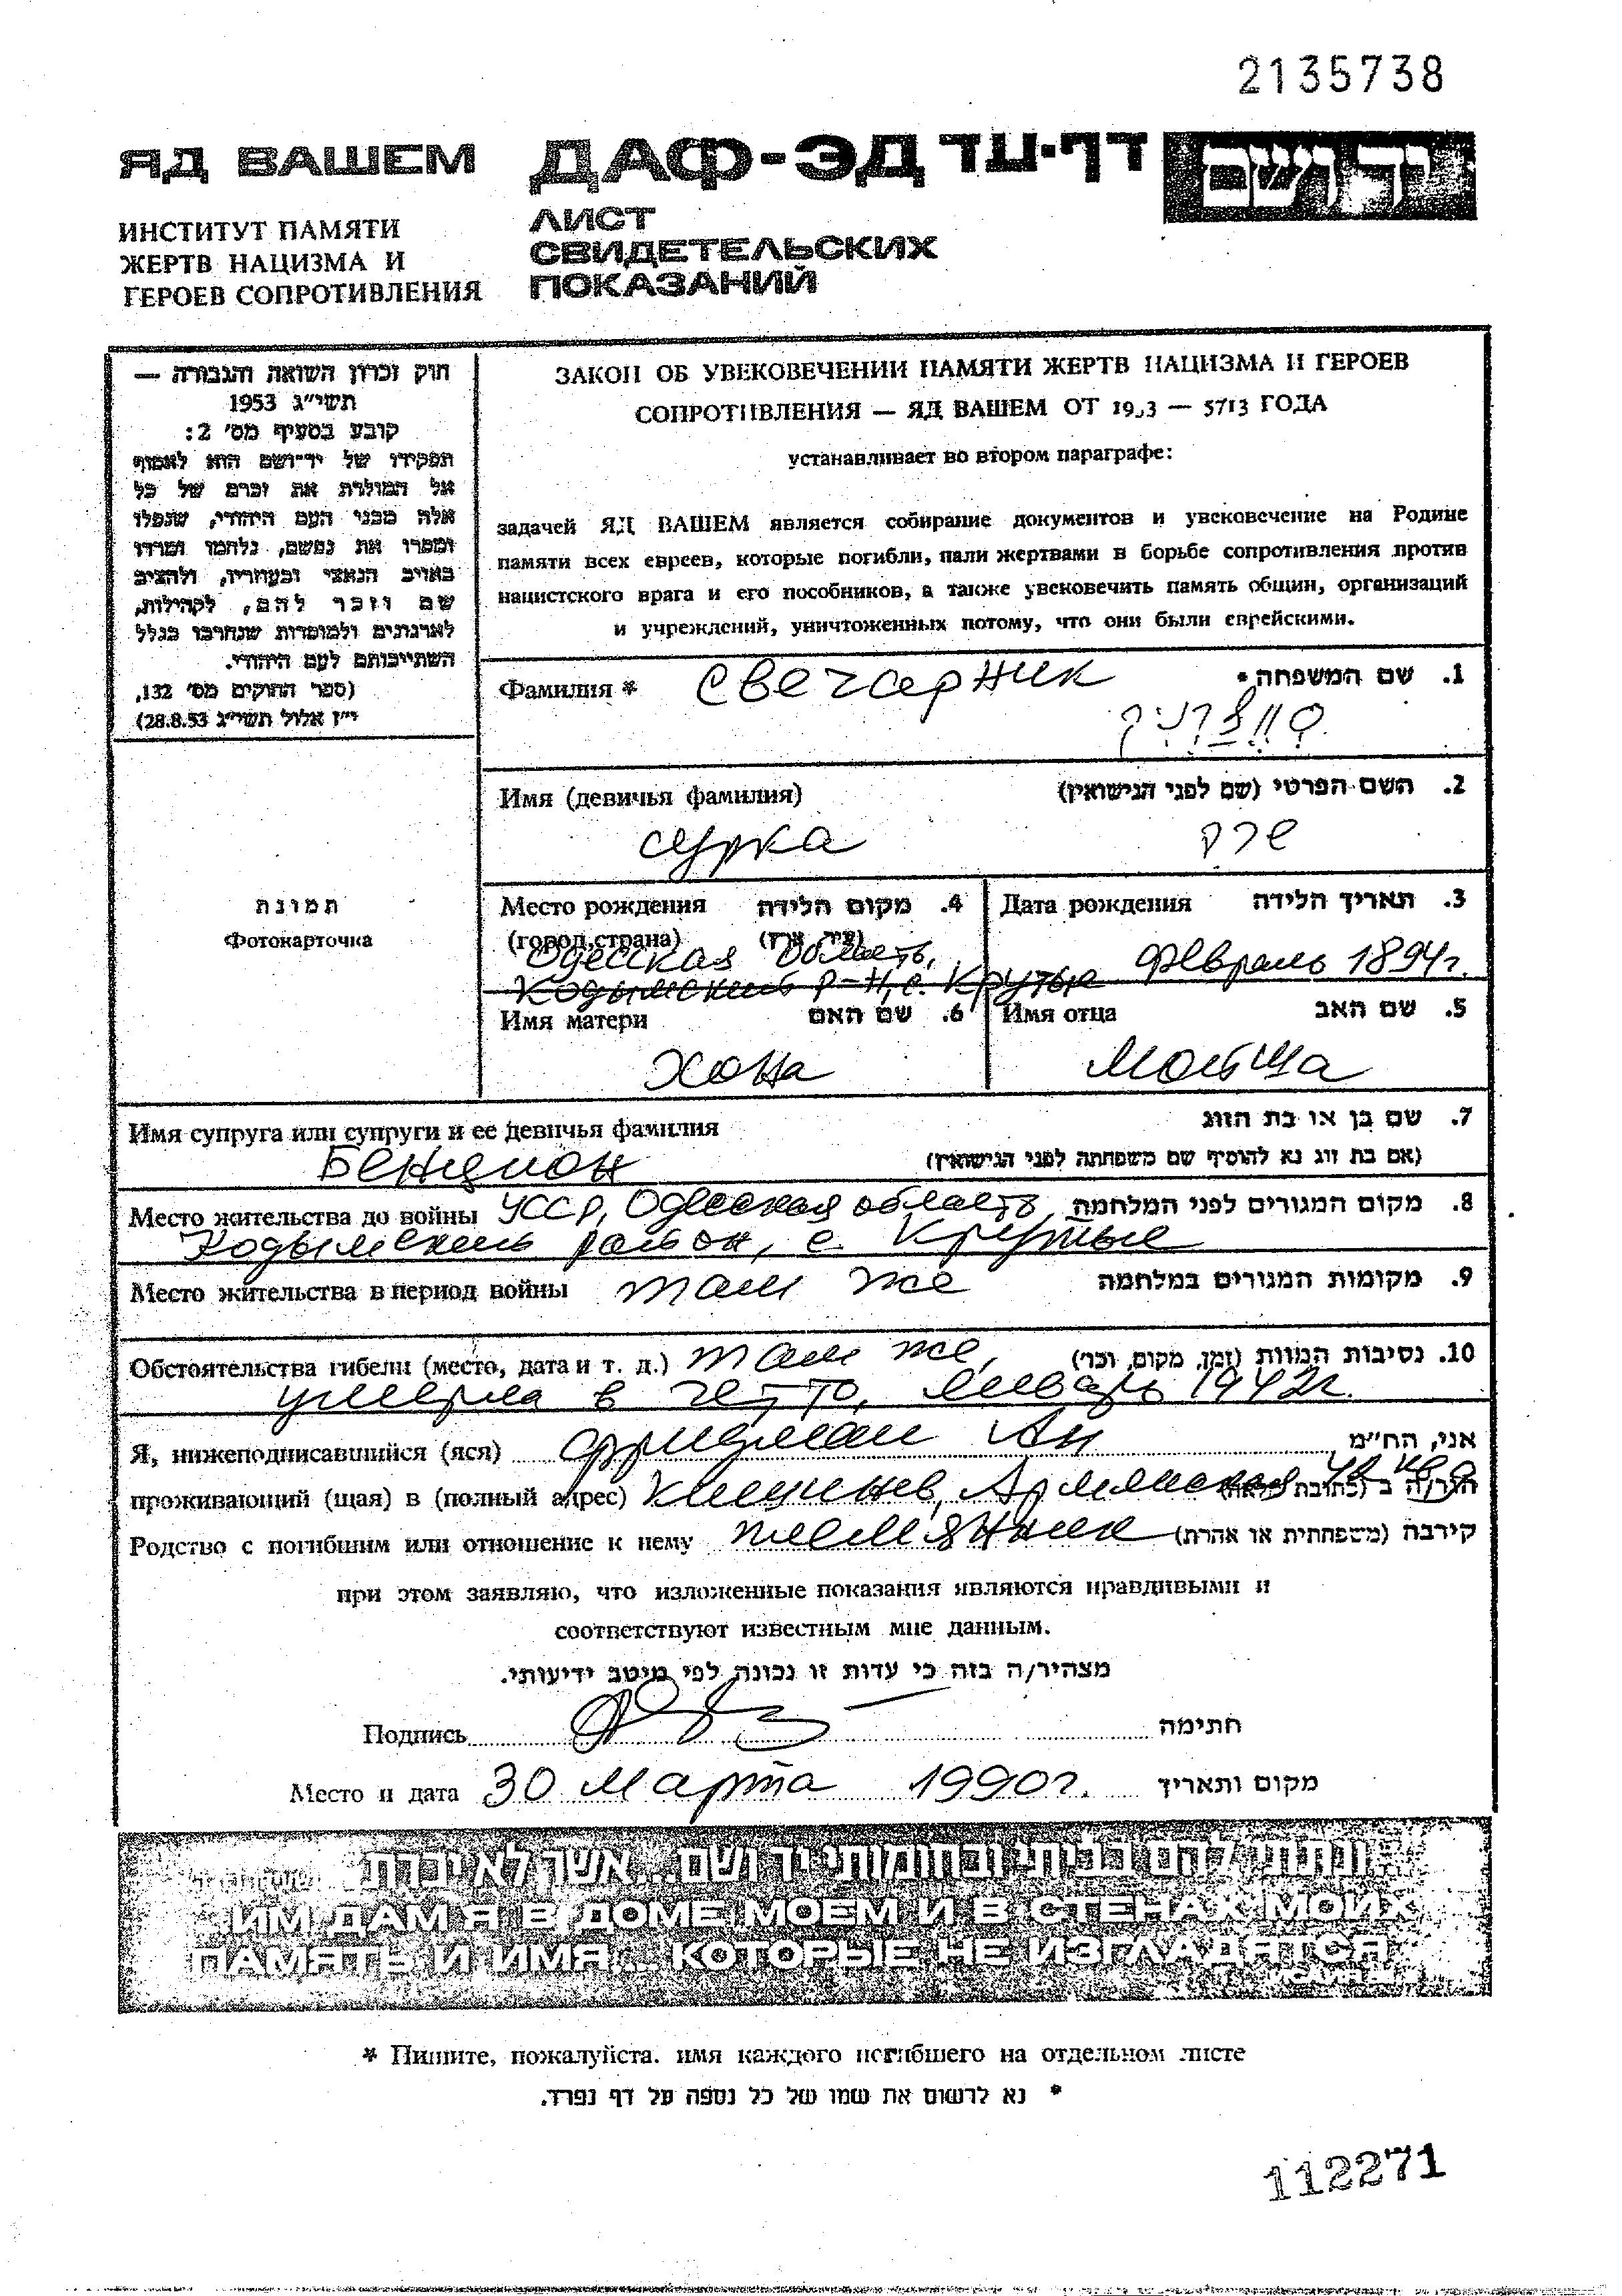 2135738
ЯД ВАШЕМ
ДАФ-ЭД דף-עד
יד ושם
ИНСТИТУТ ПАМЯТИ
ЖЕРТВ НАЦИЗМА И
ГЕРОЕВ СОПРОТИВЛЕНИЯ
ЛИСТ
СВИДЕТЕЛЬСКИХ
ПОКАЗАНИЙ
חוק זכרון השואה והגבורה —
תשי״ג 1953
קובע בסעיף מס׳ 2:
תפקידו של יד־ושם הוא לאסוף
אל המולדת את זכרם של כל
אלה מבני העם היהודי, שנפלו
ומסרו את נפשם, נלחמו ומרדו
באויב הנאצי ובעוזריו, ולהציב
שם וזכר להם, לקהילות,
לארגונים ולמוסדות שנחרבו בגלל
השתייכותם לעם היהודי.
(ספר החוקים מס׳ 132,
י״ז אלול תשי״ג 28.8.53)
ЗАКОН ОБ УВЕКОВЕЧЕНИИ ПАМЯТИ ЖЕРТВ НАЦИЗМА И ГЕРОЕВ
СОПРОТИВЛЕНИЯ — ЯД ВАШЕМ ОТ 1953 — 5713 ГОДА
устанавливает во втором параграфе:
задачей ЯД ВАШЕМ является собирание документов и увековечение на Родине
памяти всех евреев, которые погибли, пали жертвами в борьбе сопротивления против
нацистского врага и его пособников, а также увековечить память общин, организаций
и учреждений, уничтоженных потому, что они были еврейскими.
Фамилия * Свечарник 1. שם המשפחה*
Имя (девичья фамилия) 2. השם הפרטי (שם לפני הנישואין)
Сурка שרק
תמונת
Фотокарточка
Место рождения 4. מקום הלידה
(город, страна) (עיר, ארץ)
Одесская область,
Кодымский р-н, с. Крутые
Дата рождения 3. תאריך הלידה
Февраль 1894г.
Имя матери 6. שם האם
Хона
Имя отца 5. שם האב
Мойша
Имя супруга или супруги и ее девичья фамилия 7. שם בן או בת הזוג
Бенцион (אם בת זוג נא להוסיף שם משפחתה לפני הנישואין)
Место жительства до войны УССР, Одесская область 8. מקום המגורים לפני המלחמה
Кодымский район, с. Крутые
Место жительства в период войны там же 9. מקומות המגורים במלחמה
Обстоятельства гибели (место, дата и т. д.) там же, 10. נסיבות המוות (זמן, מקום, וכו׳)
умерла в гетто, январь 1942г.
Я, нижеподписавшийся (яся) Фридман אני, הח״מ
проживающий (щая) в (полный адрес) Кишинев, Армянская
Родство с погибшим или отношение к нему племянник קירבה (משפחתית או אחרת)
при этом заявляю, что изложенные показания являются правдивыми и
соответствуют известным мне данным.
מצהיר/ה בזה כי עדות זו נכונה לפי מיטב ידיעותי.
Подпись חתימה
Место и дата 30 марта 1990г. מקום ותאריך
ונתתי להם בביתי ובחומותי יד ושם... אשר לא יכרת
ИМ ДАМ Я В ДОМЕ МОЕМ И В СТЕНАХ МОИХ
ПАМЯТЬ И ИМЯ... КОТОРЫЕ НЕ ИЗГЛАДЯТСЯ
* Пишите, пожалуйста. имя каждого погибшего на отдельном листе
* נא לרשום את שמו של כל נספה על דף נפרד.
112271